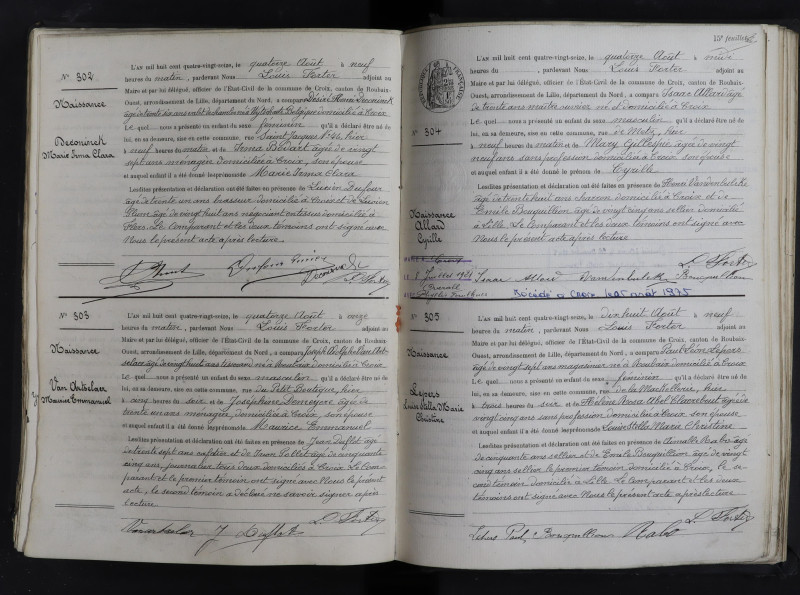 N° 302
Naissance
Deconinck
Marie Irma Clara
L'AN mil huit cent quatre-vingt-seize, le quatorze Août à neuf
heures du matin, pardevant Nous Louis Fortier adjoint au
Maire et par lui délégué, officier de l'État-Civil de la commune de Croix, canton de Roubaix-
Ouest, arrondissement de Lille, département du Nord, a comparu Désiré Deconinck
âgé de trente domicilié à Croix
LEquel nous a présenté un enfant du sexe féminin qu'il a déclaré être né de
lui, en sa demeure, sise en cette commune, rue Saint Jacques N° 46, hier
à neuf heures du matin et de Irma Bédart âgée de vingt
sept ans ménagère domiciliée à Croix, son épouse
et auquel enfant il a été donné les prénoms de Marie Irma Clara
Lesdites présentation et déclaration ont été faites en présence de Lucien Dufour
âgé de trente un ans brasseur domicilié à Croix et de Lucien
âgé de vingt huit ans négociant domicilié à
Flers. Le comparant et les deux témoins ont signé avec
Nous le présent acte après lecture.
N° 303
Naissance
Maurice Emmanuel
L'AN mil huit cent quatre-vingt-seize, le quatorze Août à onze
heures du matin, pardevant Nous Louis Fortier adjoint au
Maire et par lui délégué, officier de l'État-Civil de la commune de Croix, canton de Roubaix-
Ouest, arrondissement de Lille, département du Nord, a comparu Joseph
âgé de vingt huit ans né à Roubaix domicilié à Croix
LEquel nous a présenté un enfant du sexe masculin qu'il a déclaré être né de
lui, en sa demeure, sise en cette commune, rue du Petit Boutique, hier
à cinq heures du soir et de Joséphine Demeyere âgée de
trente un ans ménagère, domiciliée à Croix, son épouse
et auquel enfant il a été donné les prénoms de Maurice Emmanuel
Lesdites présentation et déclaration ont été faites en présence de Jean Duflot âgé
de trente sept ans et de Jean Pollet âgé de cinquante
cinq ans, journalier tous deux domiciliés à Croix. Le Com-
parant et le premier témoin ont signé avec Nous le présent
acte, le second témoin a déclaré ne savoir signer après
lecture
J. Duflot
15e feuillet
N° 304
Naissance
Allard
Cyrille
L'AN mil huit cent quatre-vingt-seize, le quatorze Août à midi
heures du , pardevant Nous Louis Fortier adjoint au
Maire et par lui délégué, officier de l'État-Civil de la commune de Croix, canton de Roubaix-
Ouest, arrondissement de Lille, département du Nord, a comparu Isaac Allard âgé
de trente ans né et domicilié à Croix
LEquel nous a présenté un enfant du sexe masculin qu'il a déclaré être né de
lui, en sa demeure, sise en cette commune, rue de Metz, hier
à neuf heures du matin et de Mary Gillespie âgée de vingt
neuf ans sans profession domiciliée à Croix son épouse
et auquel enfant il a été donné le prénom de Cyrille
Lesdites présentation et déclaration ont été faites en présence de
âgé de trente huit ans domicilié à Croix et de
Emile Bouquillion âgé de vingt cinq ans sellier domicilié
à Lille. Le comparant et les deux témoins ont signé avec
Nous le présent acte après lecture
Isaac Allard Bouquillion
Décédé à Croix le 25 août 1975
N° 305
Naissance
Lepers
Louise Stella Marie
Christine
L'AN mil huit cent quatre-vingt-seize, le dix huit Août à neuf
heures du matin, pardevant Nous Louis Fortier adjoint au
Maire et par lui délégué, officier de l'État-Civil de la commune de Croix, canton de Roubaix-
Ouest, arrondissement de Lille, département du Nord, a comparu Paul Léon Lepers
âgé de vingt sept ans magasinier né à Roubaix domicilié à Croix
LEquel nous a présenté un enfant du sexe féminin qu'il a déclaré être né de
lui, en sa demeure, sise en cette commune, rue de la Mackellerie, hier
à trois heures du soir et de Hélène Anna Abel âgée de
vingt cinq ans sans profession domiciliée à Croix, son épouse
et auquel enfant il a été donné les prénoms de Louise Stella Marie Christine
Lesdites présentation et déclaration ont été faites en présence de Rabo âgé
de cinquante ans sellier et de Emile Bouquillion âgé de vingt
cinq ans sellier le premier témoin domicilié à Croix, le se-
cond témoin domicilié à Lille. Le comparant et les deux
témoins ont signé avec Nous le présent acte après lecture
Lepers Paul, E Bouquillion Rabo